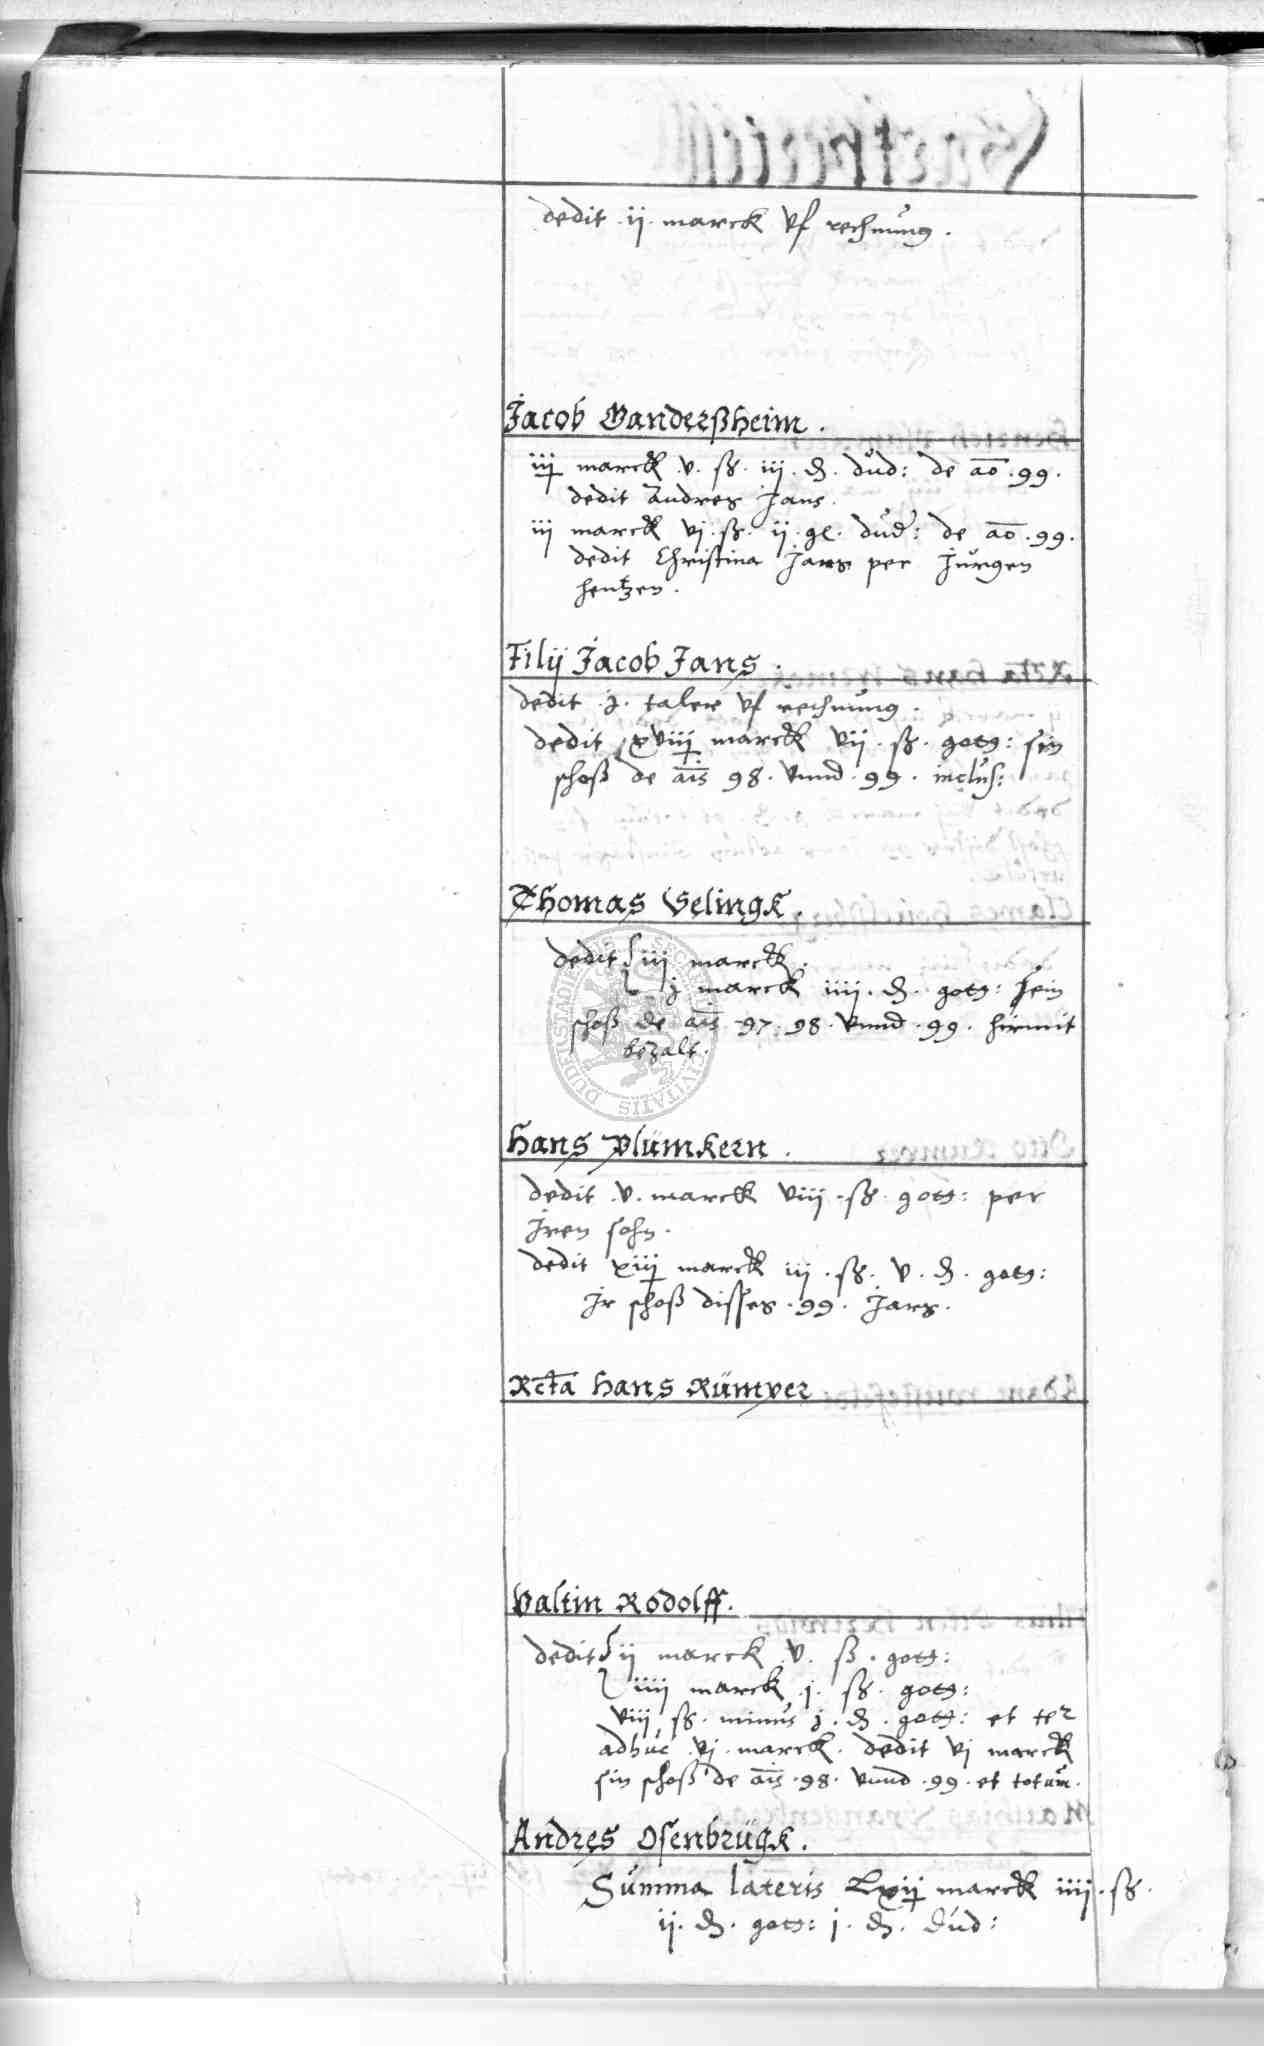 dedit .ij. marck vf rechnung.
Jacob Ganderßheim.
iij marck .v. ß. iij. ₰. dud: de ao .99.
dedit Andres Jans.
iij marck vj. ß. ij. gl. dud: de ao .99.
dedit Christina Jans per Jurgen
hentzen.
Filij Jacob Jans.
dedit .j. taler vf rechnung.
dedit xviij marck vij. ß. gott: sin
schoß de ais 98. vnnd .99. inclus:
Thomas Velingk.
dedit iij marck.
j marck iiij. ₰. gott: sein
schoß de ais .97. 98. vnnd .99. hirmit
bezalt.
SECRETVM CIVITATIS DUDERSTADIENSIS
Hans Plümkern.
dedit .v. marck viij .ß. gott: per
Jren sohn.
dedit xiij marck iij .ß. v. ₰. gott:
Jr schoß disses .99. Jars.
Rcta Hans Rümver
Valtin Rodolff.
dedit ij marck .v. ß. gott:
iiij marck .j. ß. gott:
viij ß. minus j. ₰. gott: et ter
adhuc .vj. marck. dedit vj marck
sin schoß de ais .98. vnnd .99. et totum.
Andres Osenbrügk.
Summa lateris Lxij marck iiij. ß.
ij. ₰. gott: j. ₰. dud: